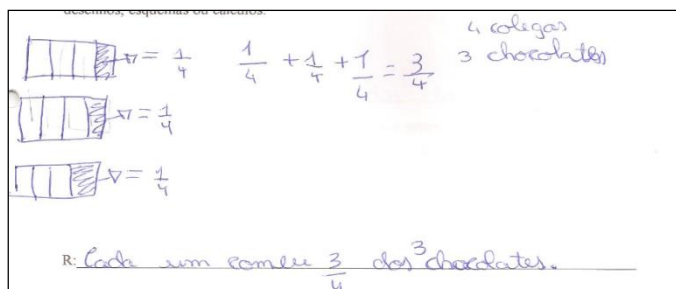 desenhos, esquemas ou cálculos.
4 colegas
3 chocolates
= 1/4
1/4 + 1/4 + 1/4 = 3/4
= 1/4
= 1/4
R: Cada um comeu 3/4 dos 3 chocolates.